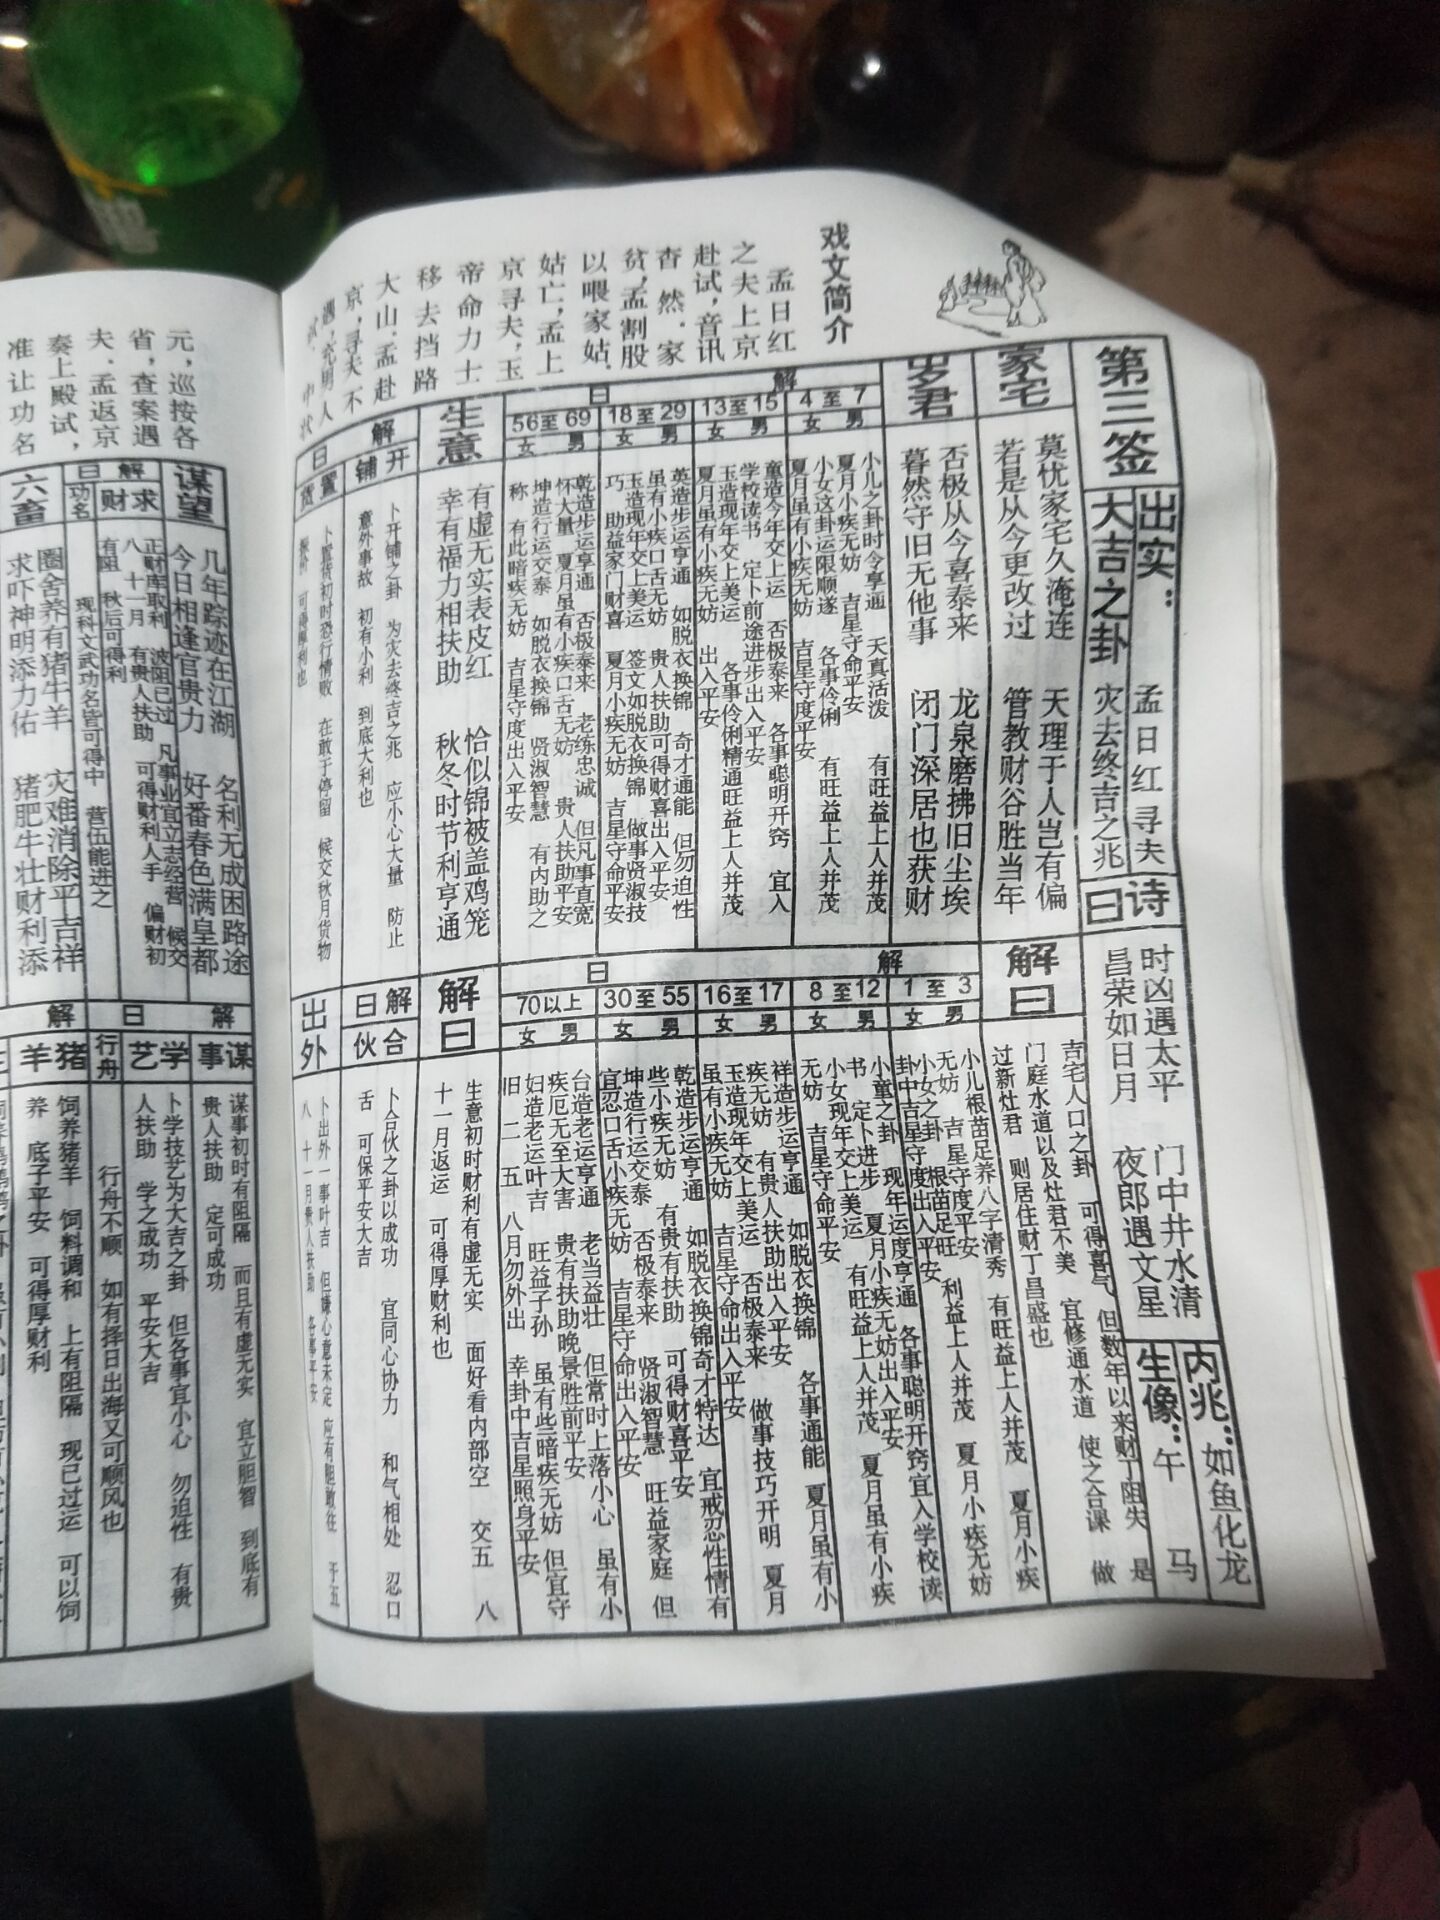 第三签
大吉之卦
灾去终吉之兆
出实：
孟日红寻夫
诗曰
时凶遇太平
门中井水清
昌荣如日月
夜郎遇文星
内兆：如鱼化龙
生像：午 马
家宅
莫忧家宅久淹连
天理于人岂有偏
若是从今更改过
管教财谷胜当年
解曰
吉宅人口之卦 可得喜气 但数年以来财丁阻失 是
门庭水道以及灶君不美 宜修通水道 使之合课 做
过新灶君 则居住财丁昌盛也
岁君
否极从今喜泰来
龙泉磨拂旧尘埃
暮然守旧无他事
闭门深居也获财
解曰
1至3
男
小儿根苗足养八字清秀 有旺益上人并茂 夏月小疾
无妨 吉星守度平安
女
小女之卦 根苗足旺 利益上人并茂 夏月小疾无妨
卦中吉星守度出入平安
4至7
男
小儿之卦时令享通 天真活泼 有旺益上人并茂
夏月小疾无妨 吉星守命平安
女
小女这卦运限顺遂 各事伶俐 有旺益上人并茂
夏月虽有小疾无妨 吉星守度平安
8至12
男
小童之卦 现年运度亨通 各事聪明开窍宜入学校读
书 定卜进步 夏月小疾无妨出入平安
女
小女现年交上美运 有旺益上人并茂 夏月虽有小疾
无妨 吉星守命平安
13至15
男
童造今年交上运 否极泰来 各事聪明开窍 宜入
学校读书 定卜前途进步出入平安
女
玉造现年交上美运 各事伶俐精通旺益上人并茂
夏月虽有小疾无妨 出入平安
16至17
男
祥造步运亨通 如脱衣换锦 各事通能 夏月虽有小
疾无妨 有贵人扶助出入平安
女
玉造现年交上美运 否极泰来 做事技巧开明 夏月
虽有小疾无妨 吉星守命出入平安
18至29
男
英造步运享通 如脱衣换锦 奇才通能 但勿迫性
虽有小疾口舌无妨 贵人扶助可得财喜出入平安
女
玉造现年交上美运 签文如脱衣换锦 做事贤淑技
巧 助益家门财喜 夏月小疾无妨 吉星守命平安
30至55
男
乾造步运亨通 如脱衣换锦奇才特达 宜戒忍性情有
些小疾无妨 有贵有扶助 可得财喜平安
女
坤造行运交泰 否极泰来 贤淑智慧 旺益家庭 但
宜忍口舌小疾无妨 吉星守命出入平安
56至69
男
乾造步运享通 否极泰来 老练忠诚 但凡事直宽
怀大量 夏月虽有小疾口舌无妨 贵人扶助平安
女
坤造行运交泰 如脱衣换锦 贤淑智慧 有内助之
称 有此暗疾无妨 吉星守度出入平安
70以上
男
台造老运亨通 老当益壮 但常时上落小心 虽有小
疾厄无至大害 贵有扶助晚景胜前平安
女
妇造老运叶吉 旺益子孙 虽有些暗疾无妨 但宜守
旧 二 五 八月勿外出 幸卦中吉星照身平安
生意
有虚无实表皮红
恰似锦被盖鸡笼
幸有福力相扶助
秋冬时节利亨通
解曰
生意初时财利有虚无实 面好看内部空 交五 八
十一月返运 可得厚财利也
解曰
开铺
卜开铺之卦 为灾去终吉之兆 应小心大量 防止
意外事故 初有小利 到底大利也
置货
卜置货初时恐行情败 在敢于停留 候交秋月货物
可得厚利也
解曰
合伙
卜合伙之卦以成功 宜同心协力 和气相处 忍口
舌 可保平安大吉
出外
卜出外一事叶吉 但嫌心意未定 应有胆敢往 于五
八 十一月贵人扶助 各事平安
戏文简介
孟日红
之夫上京
赴试，音讯
杳然．家
贫，孟割股
以喂家姑．
姑亡，孟上
京寻夫，玉
帝命力士
移去挡路
大山．孟赴
京，寻夫不
中状
元，巡按各
省，查案遇
夫．孟返京
奏上殿试，
准让功名
谋望
几年踪迹在江湖
名利无成困路途
今日相逢官贵力
好番春色满皇都
解曰
求财
正财库取利 波阻已过 凡事业宜立志经营 候交
八 十一月 有贵人扶助 可得财利人手 偏财初
有阻 秋后可得利
功名
现科文武功名皆可得中 营伍能进之
解曰
谋事
谋事初时有阻隔 而且有虚无实 宜立胆智 到底有
贵人扶助 定可成功
学艺
卜学技艺为大吉之卦 但各事宜小心 勿迫性 有贵
人扶助 学之成功 平安大吉
行舟
行舟不顺 如有择日出海又可顺风也
六畜
圈舍养有猪牛羊
灾难消除平吉祥
求吓神明添力佑
猪肥牛壮财利添
解
猪羊
饲养猪羊 饲料调和 上有阻隔 现已过运 可以饲
养 底子平安 可得厚财利